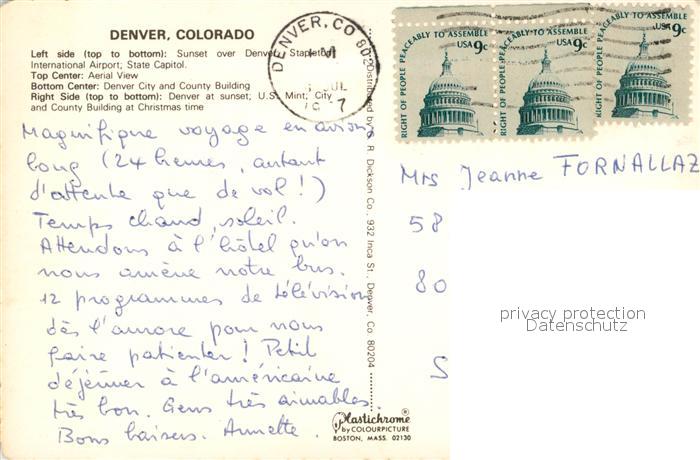 DENVER, COLORADO
Left side (top to bottom): Sunset over Denver; Stapleton
International Airport; State Capitol.
Top Center: Aerial View
Bottom Center: Denver City and County Building
Right Side (top to bottom): Denver at sunset; U.S. Mint; City
and County Building at Christmas time
Magnifique voyage en avion,
long (24 heures, autant
d'attente que de vol!)
Temps chaud, soleil.
Attendons à l'hôtel qu'on
nous amène notre bus.
12 programmes de télévision
dès l'aurore pour nous
faire patienter! Petit
déjeuner à l'américaine
très bon. Gens très aimables.
Bons baisers. Annette.
Distributed by R. Dickson Co., 932 Inca St., Denver, Co 80204
Plastichrome®
by COLOURPICTURE
BOSTON, MASS. 02130
DENVER, CO 802
JUL
RIGHT OF PEOPLE PEACEABLY TO ASSEMBLE
USA 9c
RIGHT OF PEOPLE PEACEABLY TO ASSEMBLE
USA 9c
RIGHT OF PEOPLE PEACEABLY TO ASSEMBLE
USA 9c
Mrs Jeanne FORNALLAZ
58
80
S
privacy protection
Datenschutz